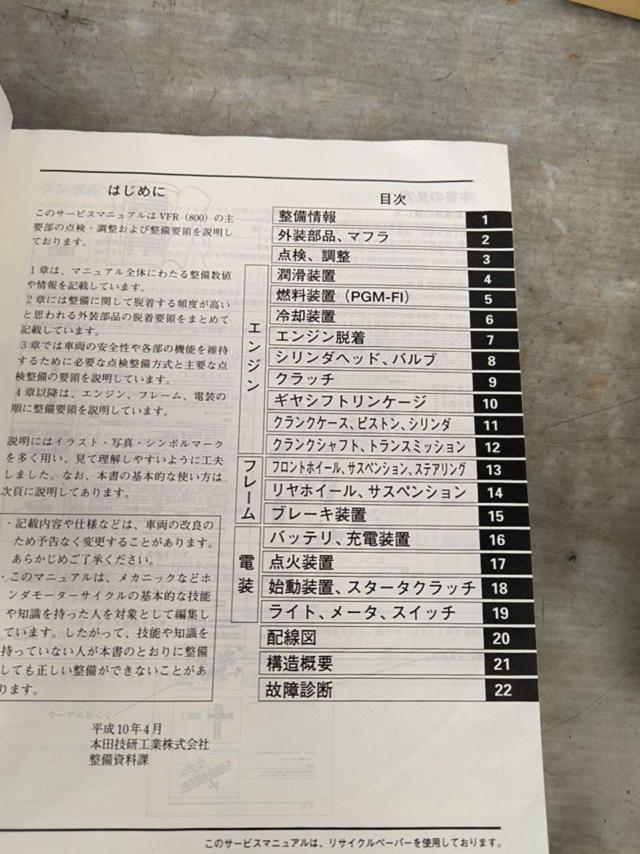 はじめに
このサービスマニュアルは VFR（800）の主
要部の点検・調整および整備要領を説明し
ております。
1章は、マニュアル全体にわたる整備数値
や情報を記載しています。
2章には整備に関して脱着する頻度が高い
と思われる外装部品の脱着要領をまとめて
記載しています。
3章では車両の安全性や各部の機能を維持
するために必要な点検整備方式と主要な点
検整備の要領を説明しています。
4章以降は、エンジン、フレーム、電装の
順に整備要領を説明しています。
説明にはイラスト・写真・シンボルマーク
を多く用い、見て理解しやすいように工夫
しました。なお、本書の基本的な使い方は
次頁に説明してあります。
・記載内容や仕様などは、車両の改良の
ため予告なく変更することがあります。
あらかじめご了承ください。
・このマニュアルは、メカニックなどホ
ンダモーターサイクルの基本的な技能
や知識を持った人を対象として編集し
ています。したがって、技能や知識を
持っていない人が本書のとおりに整備
しても正しい整備ができないことがあ
ります。
平成10年4月
本田技研工業株式会社
整備資料課
目次
整備情報 1
外装部品、マフラ 2
点検、調整 3
エンジン
潤滑装置 4
燃料装置（PGM-FI） 5
冷却装置 6
エンジン脱着 7
シリンダヘッド、バルブ 8
クラッチ 9
ギヤシフトリンケージ 10
クランクケース、ピストン、シリンダ 11
クランクシャフト、トランスミッション 12
フレーム
フロントホイール、サスペンション、ステアリング 13
リヤホイール、サスペンション 14
ブレーキ装置 15
電装
バッテリ、充電装置 16
点火装置 17
始動装置、スタータクラッチ 18
ライト、メータ、スイッチ 19
配線図 20
構造概要 21
故障診断 22
このサービスマニュアルは、リサイクルペーパーを使用しております。